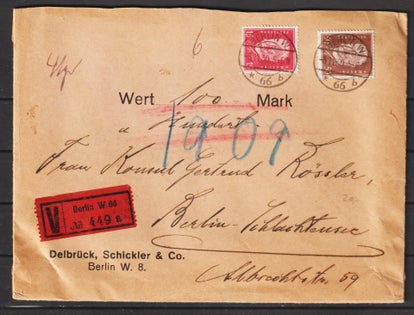 6
66 b
66 b
Wert 100 Mark
Hundert
1909
Frau Konsul Gertrud Rössler,
Berlin W. 66
V
449 a
Berlin-Schlachtensee
Delbrück, Schickler & Co.
Berlin W. 8.
Albrechtstr. 59